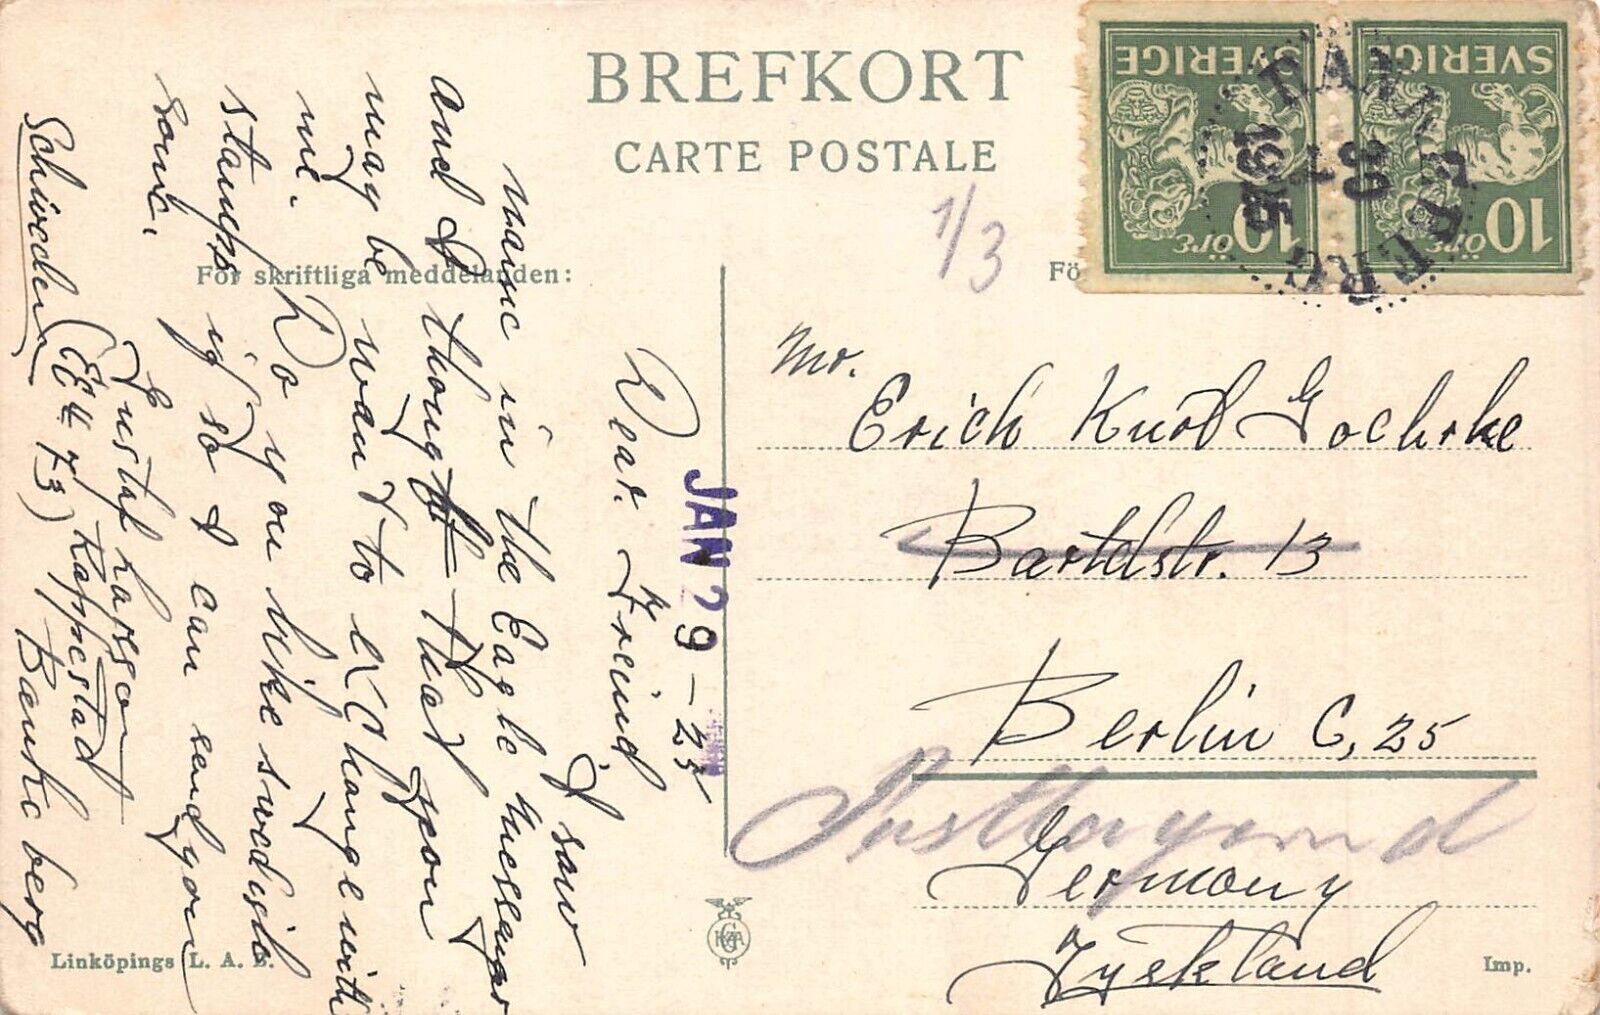 BREFKORT
CARTE POSTALE
För skriftliga meddelanden:
Fö
1/3
SVERIGE
10 öre
SVERIGE
10 öre
BANKEBERG
30
1
1925
JAN 29 – 25
Dear. Freind
I saw
name in the Eagle Messenger
and I thought that you
may be want to exchange with
me.
Do you like swedish
stamps if so I can send you
some.
Gustaf Larsson
(EE 4473) Rappestad
Schweden Banke berg
Mr.
Erich Knöt Goehrke
Bartelstr. 13
Berlin C, 25
Germany
Tyskland
Linköpings L. A. B.
Imp.